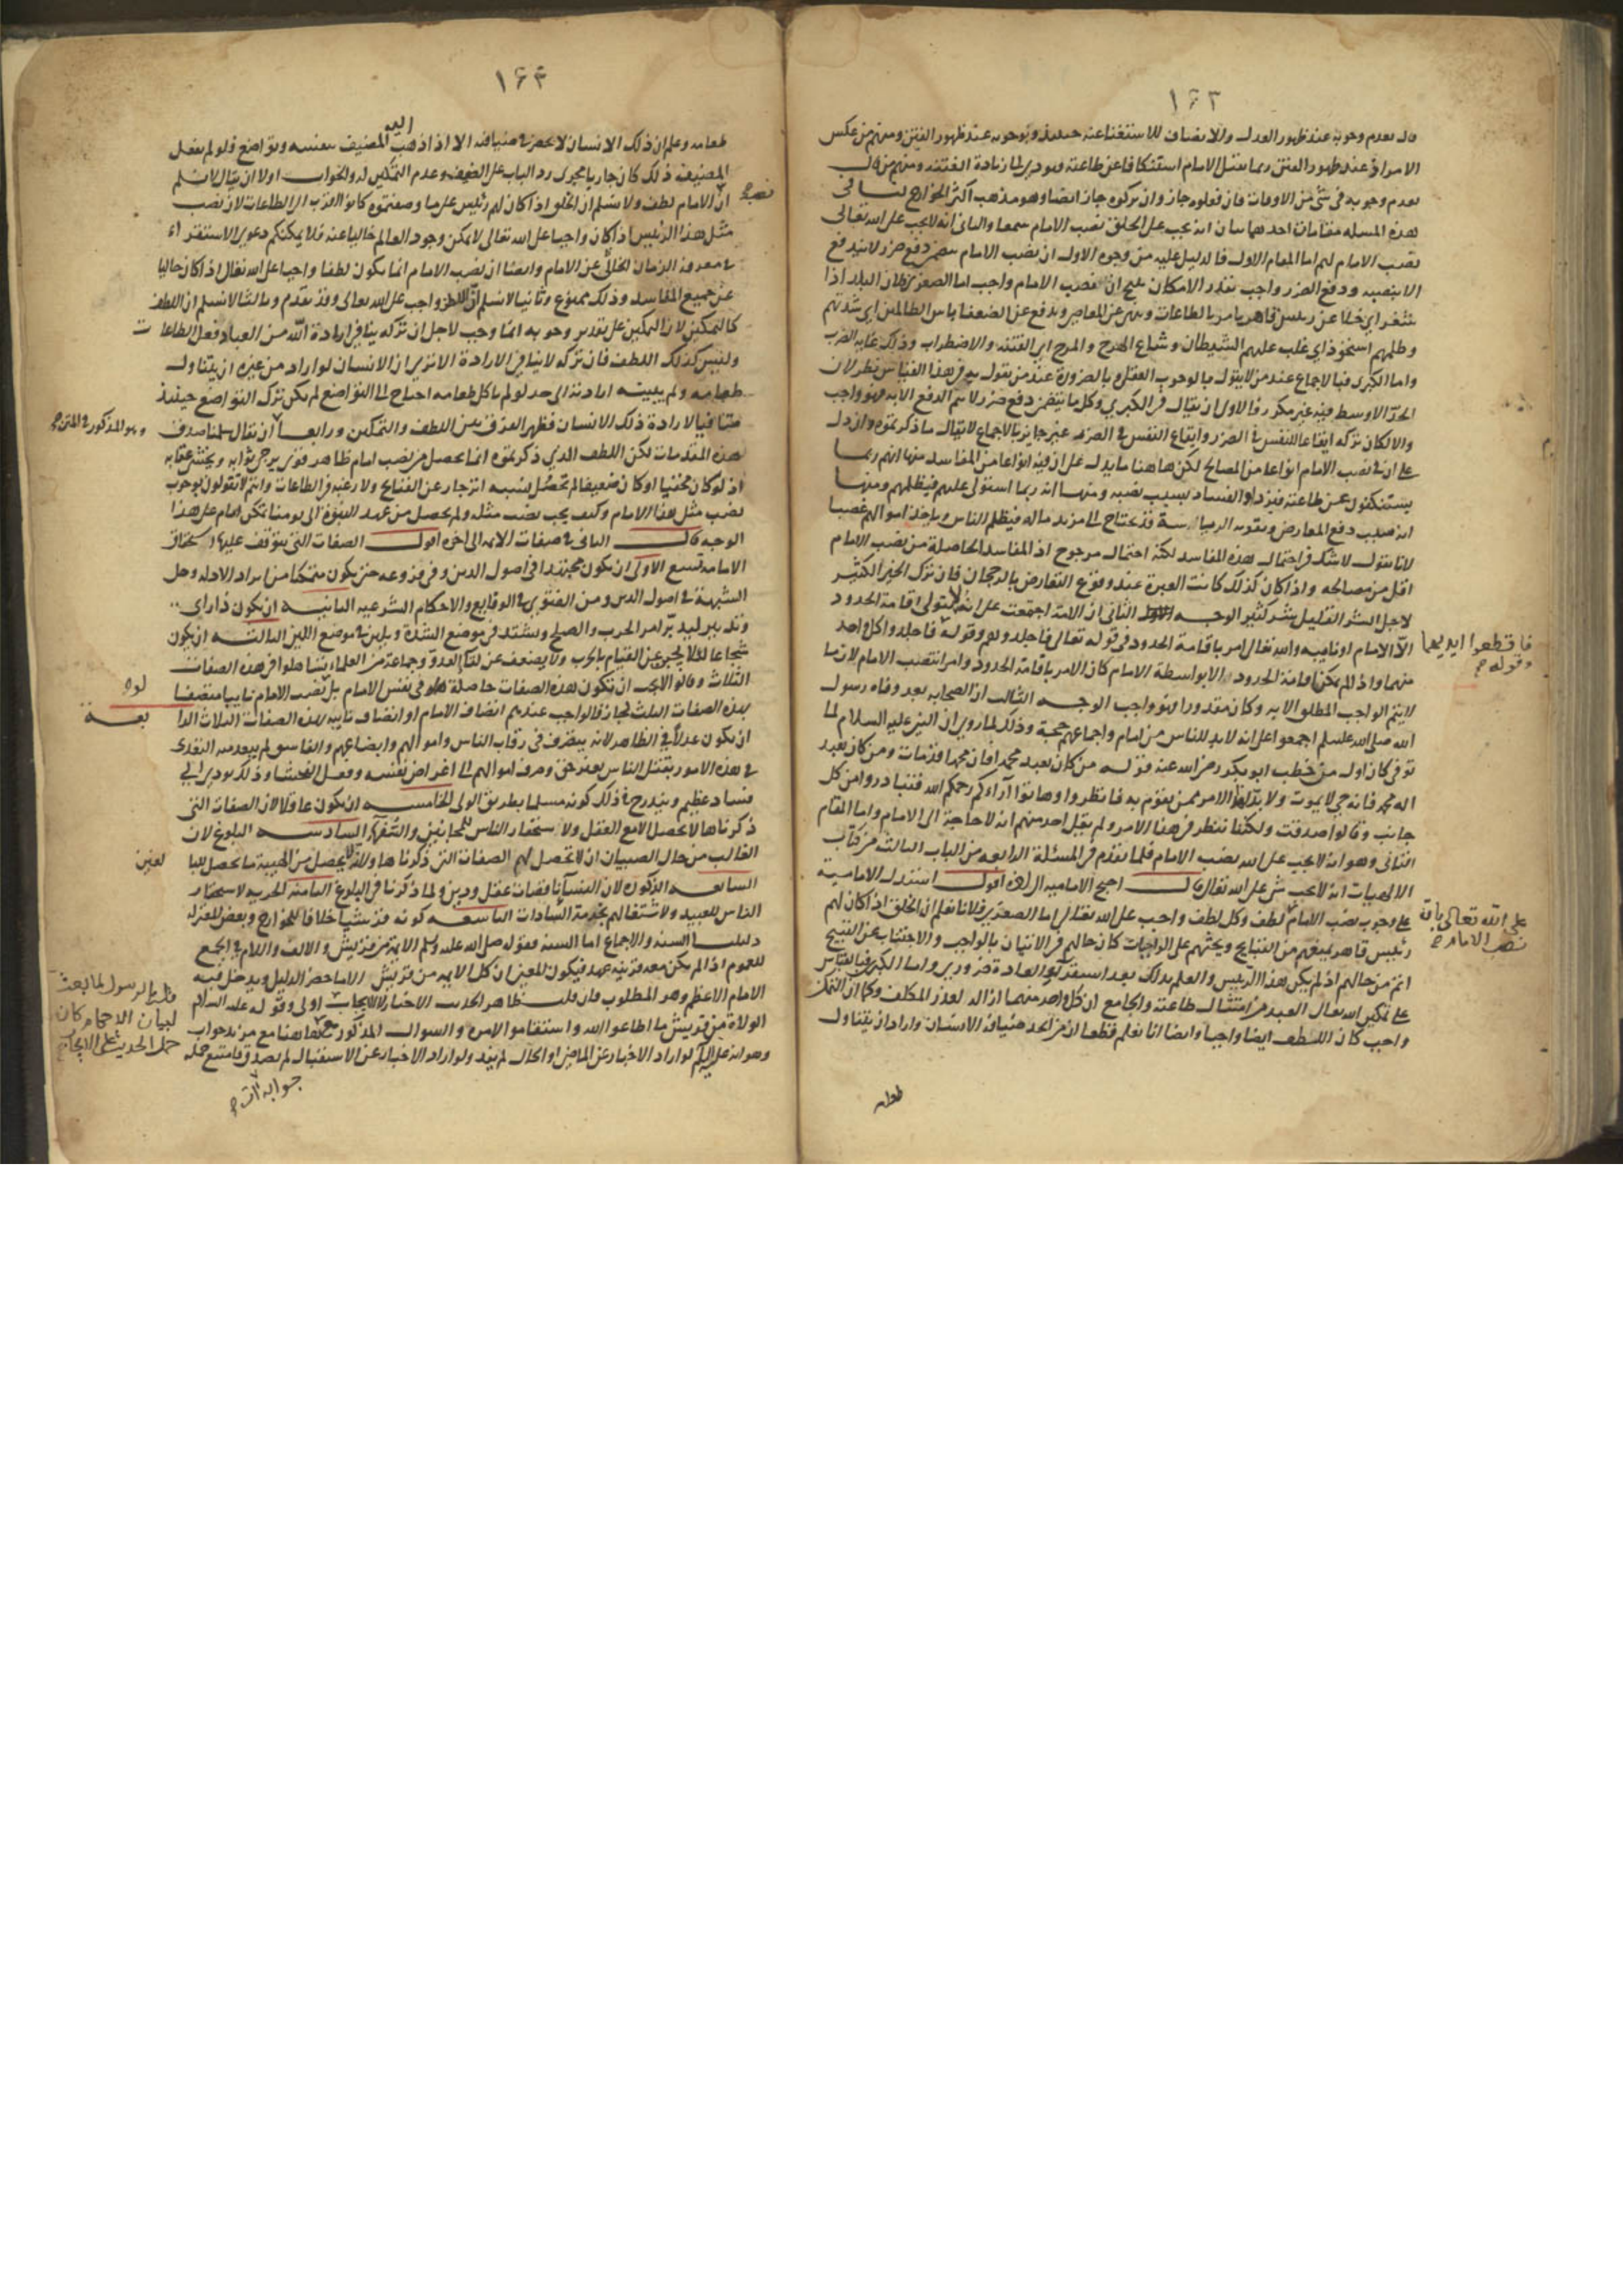 ١٦٣
قال بعدم وجوبه عند ظهور العدل والانصاف للاستغناء عنه حينئذ وبوجوبه عند ظهور الفتن ومنهم من عكس
الامر اذ عند ظهور الفتن ربما يقتل الامام استنكافا عن طاعته فيودي الى زيادة الفتنه ومنهم من قال
بعدم وجوبه في شئ من الاوقات فان فعلوه جاز وان تركوه جاز ايضا وهو مذهب اكثر الخوارج لنا في
هذه المسله مقامات احدهما بيان انه يجب على الخلق نصب الامام سمعا والثاني انه لا يجب على الله تعالى
نصب الامام لهم اما المقام الاول فالدليل عليه من وجوه الاول ان نصب الامام يتضمن دفع ضرر لا يندفع
الا بنصبه ودفع الضرر واجب بقدر الامكان ينتج ان نصب الامام واجب اما الصغرى فلان البلد اذا
شغر اي خلا عن رئيس قاهر يامر بالطاعات وينهى عن المعاصي ويدفع عن الضعفا باس الظالمين اي شدتهم
وظلمهم استحوذ اي غلب عليهم الشيطان وشاع الهرج والمرج اي الفتنه والاضطراب وذلك غايه الضرر
واما الكبرى فبالاجماع عند من لا يقول بالوجوب العقلي وبالضرورة عند من يقول به وفي هذا القياس نظر لان
الحد الاوسط فيه غير مكرر فالاولى ان يقال في الكبرى وكل ما يتضمن دفع ضرر لا يتم الدفع الا به فهو واجب
والا لكان تركه ايقاعا للنفس في الضرر وايقاع النفس في الضرر غير جايز بالاجماع لا يقال ما ذكرتموه وان دل
على ان في نصب الامام انواعا من المصالح لكن هاهنا ما يدل على ان فيه انواعا من المفاسد منها انهم ربما
يستنكفون عن طاعته فيزداد الفساد بسبب نصبه ومنها انه ربما استولى عليهم فيظلمهم ومنها
انه بسبب دفع المعارض وتقويه الرياسة قد يحتاج الى مزيد مال فيظلم الناس وياخذ اموالهم غصبا
لانا نقول لا شك في احتمال هذه المفاسد لكنه احتمال مرجوح اذ المفاسد الحاصلة من نصب الامام
اقل من مصالحه واذا كان كذلك كانت العبرة عند وقوع التعارض بالرجحان فان ترك الخير الكثير
لاجل الشر القليل شر كثير الوجه الثاني ان الامة اجمعت على انه لا يتولى اقامة الحدود
الا الامام او نايبه والله تعالى امر باقامة الحدود في قوله تعالى فاجلدوهم وقوله فاجلدوا كل واحد
فاقطعوا ايديهما
وقوله
منهما واذا لم يكن اقامة الحدود الا بواسطة الامام كان الامر باقامة الحدود امرا بنصب الامام لان ما
لا يتم الواجب المطلق الا به وكان مقدورا فهو واجب الوجه الثالث ان الصحابه بعد وفاه رسول
الله صلى الله عليه وسلم اجمعوا على انه لا بد للناس من امام واجماعهم حجة وذلك لما روي ان النبي عليه السلام لما
توفي كان اول من خطب ابو بكر رضي الله عنه فقال من كان يعبد محمدا فان محمدا قد مات ومن كان يعبد
اله محمد فانه حي لا يموت ولا بد لهذا الامر ممن يقوم به فانظروا وهاتوا آراءكم رحمكم الله فتبادروا من كل
جانب وقالوا صدقت ولكنا ننظر في هذا الامر ولم يقل احد منهم انه لا حاجة الى الامام واما المقام
الثاني وهو انه لا يجب على الله نصب الامام فلما تقدم في المسئلة الرابعه من الباب الثالث من كتاب
الالهيات انه لا يجب شئ على الله تعالى قال احتج الاماميه الى آخره اقول استدل الاماميه
على وجوب نصب الامام لطف وكل لطف واجب على الله تعالى اما الصغرى فلانا نعلم ان الخلق اذا كان لهم
على الله تعالى بان
نصب الامام
رئيس قاهر يمنعهم من القبايح ويحثهم على الواجبات كان حالهم في الاتيان بالواجب والاجتناب عن القبيح
اتم من حالهم اذا لم يكن هذا الرئيس والعلم بذلك بعد استقراء العادة ضروري واما الكبرى فبالقياس
على تمكين الله تعالى العبد من امتثال طاعته والجامع ان كل واحد منهما ازاله لعذر المكلف وكما ان التمكين
واجب كان اللطف ايضا واجبا وايضا انا نعلم قطعا ان من اتخذ ضيافة الانسان واراد ان يتناول
طعامه
١٦٤
طعامه وعلم ان ذلك الانسان لا يحضر في ضيافته الا اذا ذهب اليه المضيف بنفسه وتواضع فلو لم يفعل
المضيف ذلك كان جاريا مجرى رد الباب على الضيف وعدم التمكين له والجواب اولا ان يقال لا نسلم
ان الامام لطف ولا نسلم ان الخلق اذا كان لهم رئيس على ما وصفتموه كانوا اقرب الى الطاعات لان نصب
مثل هذا الرئيس اذا كان واجبا على الله تعالى لا يمكن وجود العالم خاليا عنه فلا يمكنكم دعوى الاستقراء
في معرفة الزمان الخالي عن الامام وايضا ان نصب الامام انما يكون لطفا واجبا على الله تعالى اذا كان خاليا
عن جميع المفاسد وذلك ممنوع وثانيا لا نسلم ان اللطف واجب على الله تعالى وقد تقدم وثالثا لا نسلم ان اللطف
كالتمكين لان التمكين على تقدير وجوبه انما وجب لاجل ان تركه ينافي ارادة الله من العباد فعل الطاعات
وليس كذلك اللطف فان تركه لا ينافي الارادة الا ترى ان الانسان لو اراد من غيره ان يتناول
طعامه ولم يبلغ ارادته الى حد لو لم ياكل طعامه احتاج الى التواضع لم يكن ترك التواضع حينئذ
منافيا لارادة ذلك الانسان فظهر الفرق بين اللطف والتمكين ورابعا ان يقال سلمنا صدق
وهو المذكور في المتن
هذه المقدمات لكن اللطف الذي ذكرتموه انما يحصل من نصب امام ظاهر قوي يرجى ثوابه ويخشى عقابه
اذ لو كان مختفيا او كان ضعيفا لم تحصل بسببه انزجار عن القبايح ولا رغبه في الطاعات وانتم لا تقولون بوجوب
نصب مثل هذا الامام وكيف يجب نصب مثله ولم يحصل من عهد النبوة الى يومنا تمكن امام على هذا
الوجه قال الثاني في صفات الائمه الى اخره اقول الصفات التي يتوقف عليها استحقاق
الامامه تسع الاولى ان يكون مجتهدا في اصول الدين وفي فروعه حتى يكون متمكنا من ايراد الادله وحل
الشبهة في اصول الدين ومن الفتوى في الوقايع والاحكام الشرعيه الثانيه ان يكون ذا راي
وتدبير ليدبر امر الحرب والصلح ويشتد في موضع الشدة ويلين في موضع اللين الثالثه ان يكون
شجاعا لئلا يجبن عن القيام بالحرب ولا يضعف عن لقاء العدو وجماعة من العلماء تساهلوا في هذه الصفات
الثلاث وقالوا لا يجب ان تكون هذه الصفات حاصلة في نفس الامام بل نصب الامام نايبا متصفا
بهذه الصفات الثلث لجاز فالواجب عندهم اتصاف الامام او اتصاف نايبه بهذه الصفات الثلاث الرا
بعة
ان يكون عدلا في الظاهر لانه يتصرف في رقاب الناس واموالهم وابضاعهم والفاسق لم يبعد منه التعدي
في هذه الامور بقتل الناس بغير حق وصرف اموالهم الى اغراض نفسه وفعل الفحشاء وذلك يودي الى
فساد عظيم ويندرج في ذلك كونه مسلما بطريق الاولى الخامسه ان يكون عاقلا لان الصفات التي
ذكرناها لا تحصل الا مع العقل ولاستحقار الناس للمجانين السادسه البلوغ لان
الغالب من حال الصبيان ان لا تحصل لهم الصفات التي ذكرناها ولانه لا يحصل من الهيبة ما يحصل للبا
لغين
السابعه الذكورة لان النساء ناقصات عقل ودين ولما ذكرنا في البلوغ الثامنه الحريه لاستحقار
الناس للعبيد ولاشتغالهم بخدمة السادات التاسعه كونه قرشيا خلافا للخوارج وبعض المعتزله
دليلنا السنه والاجماع اما السنه فقوله صلى الله عليه وسلم الائمه من قريش والالف واللام في الجمع
للعموم اذا لم يكن معه قرينه عهد فيكون المعنى ان كل الائمه من قريش الا ما خصه الدليل ويدخل فيه
الامام الاعظم وهو المطلوب فان قلت ظاهر الحديث الاخبار لا الايجاب اولى وقوله عليه السلام
قلنا الرسول لما بعث
لبيان الاحكام كان
حمل الحديث على الايجاب
الولاة من قريش ما اطاعوا الله واستقاموا لامره والسوال المذكور هاهنا مع مزيد جواب
وهو انه عليه السلام لو اراد الاخبار عن الماضي او الحال لم يفد ولو اراد الاخبار عن الاستقبال لم يصدق فامتنع حمله
جوابه آت